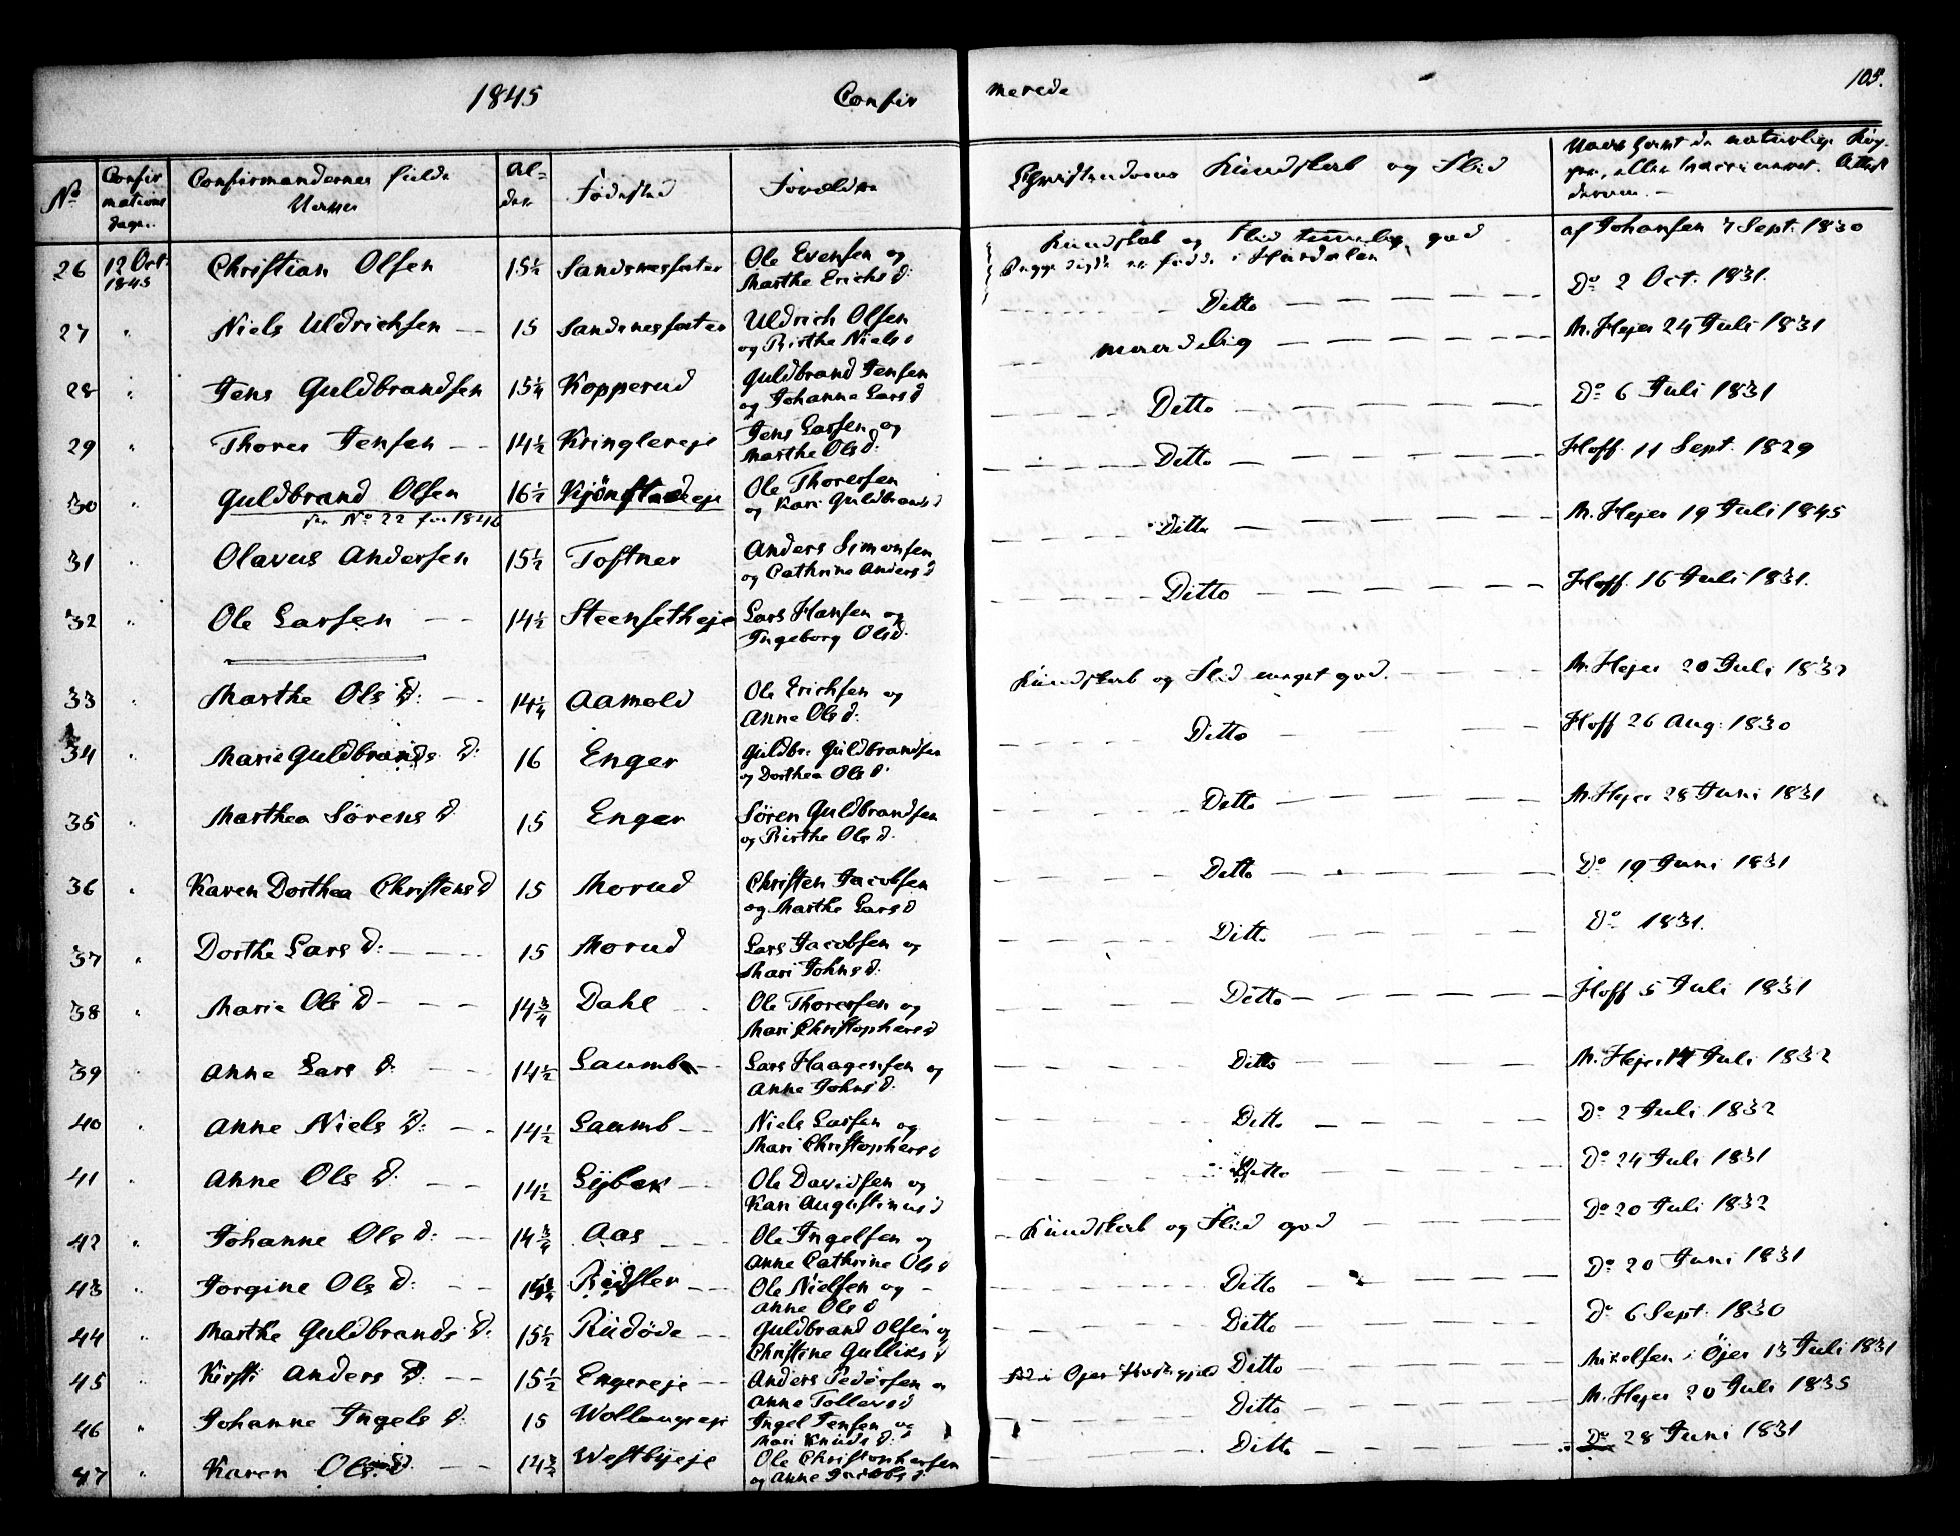 1845 Confir merede 105.
No Confirmations Dage. Confirmandernes fulde Navne Alder Fødested Forældre Christendoms Kundskab og Flid Naar havt de naturlige Kopper, eller vaccineret. Attest derom.
Kundskab og Flid temmelig god
26 12 Oct 1845 Christian Olsen 15½ Sandsnesseter Ole Evensen og Marthe Erichs d: begge disse er fødde i Hurdalen af Johansen 7 Sept. 1830
27 " Niels Uldrichsen 15 Sandsnesseter Uldrich Olsen og Birthe Niels d Ditto Do 2 Oct. 1831.
28 " Jens Guldbrandsen 15¼ Kopperud Guldbrand Jensen og Johanne Lars d maadelig M. Hejer 24 Juli 1831
29 " Thorer Jensen 14½ Kringlereje Jens Larsen og Marthe Ols d: Ditto Do 6 Juli 1831
30 " Guldbrand Olsen 16½ Kjønstadeje Ole Thoresen og Kari Guldbrands d Ditto Hoff. 11 Sept. 1829
No 22 for 1846
31 " Olavus Andersen 15½ Toftner Anders Simensen og Cathrine Anders d Ditto M. Hejer 19 Juli 1845
32 " Ole Larsen 14½ Steensetheje Lars Hansen og Ingeborg Ols d: Ditto Hoff. 16 Juli 1831.
33 " Marthe Ols D: 14¼ Aamold Ole Erichsen og Anne Ols d: Kundskab og Flid meget god. M. Hejer 20 Juli 1832
34 " Marie Guldbrands D: 16 Enger Guldbr: Guldbrandsen og Dorthea Ols d: Ditto Hoff 26 Aug: 1830
35 " Marthea Sørens D 15 Enger Søren Guldbrandsen og Birthe Ols d: Ditto M. Hejer 28 Juni 1831
36 " Karen Dorthea Christens D 15 Morud Christen Jacobsen og Marthe Lars d Ditto Do 19 Juni 1831
37 " Dorthe Lars D: 15 Morud Lars Jacobsen og Mari Johns d: Ditto Do 1831.
38 " Marie Ols D 14¾ Dahl Ole Thoresen og Mari Christophers d Ditto Hoff 5 Juli 1831
39 " Anne Lars D: 14½ Laumb Lars Haagensen og Anne Johns d: Ditto M. Hejer 14 Juli 1832
40 " Anne Niels D: 14½ Laumb Niels Larsen og Mari Christophers d Ditto Do 2 Juli 1832
41 " Anne Ols D: 14½ Lybek Ole Davidsen og Kari Augustinus d Ditto Do 24 Juli 1831
42 " Johanne Ols D: 14¾ Aas Ole Ingelsen og Anne Cathrine Ols d Kundskab og Flid god Do 20 Juli 1832
43 " Jorgine Ols D: Ole Nielsen og Anne Ols d Ditto Do 20 Juni 1831
44 " Marthe Guldbrands D: 15½ Rudøde Guldbrand Olsen og Christine Gulliks d Ditto Do 6 Sept: 1830
45 " Kirsti Anders D: 15½ Engereje Anders Pedersen og Anne Tollevs d Fød i Øjer Præstegjeld Ditto Mikelsen i Øjer 13 Juli 1831
46 " Johanne Ingels D: 15 Ingel Jensen og Mari Knuds d: Ditto M. Hejer 20 Juli 1835
47 " Karen Ols D 14¾ Westbyeje Ole Christophersen og Anne Jacobs d Ditto Do 28 Juni 1831